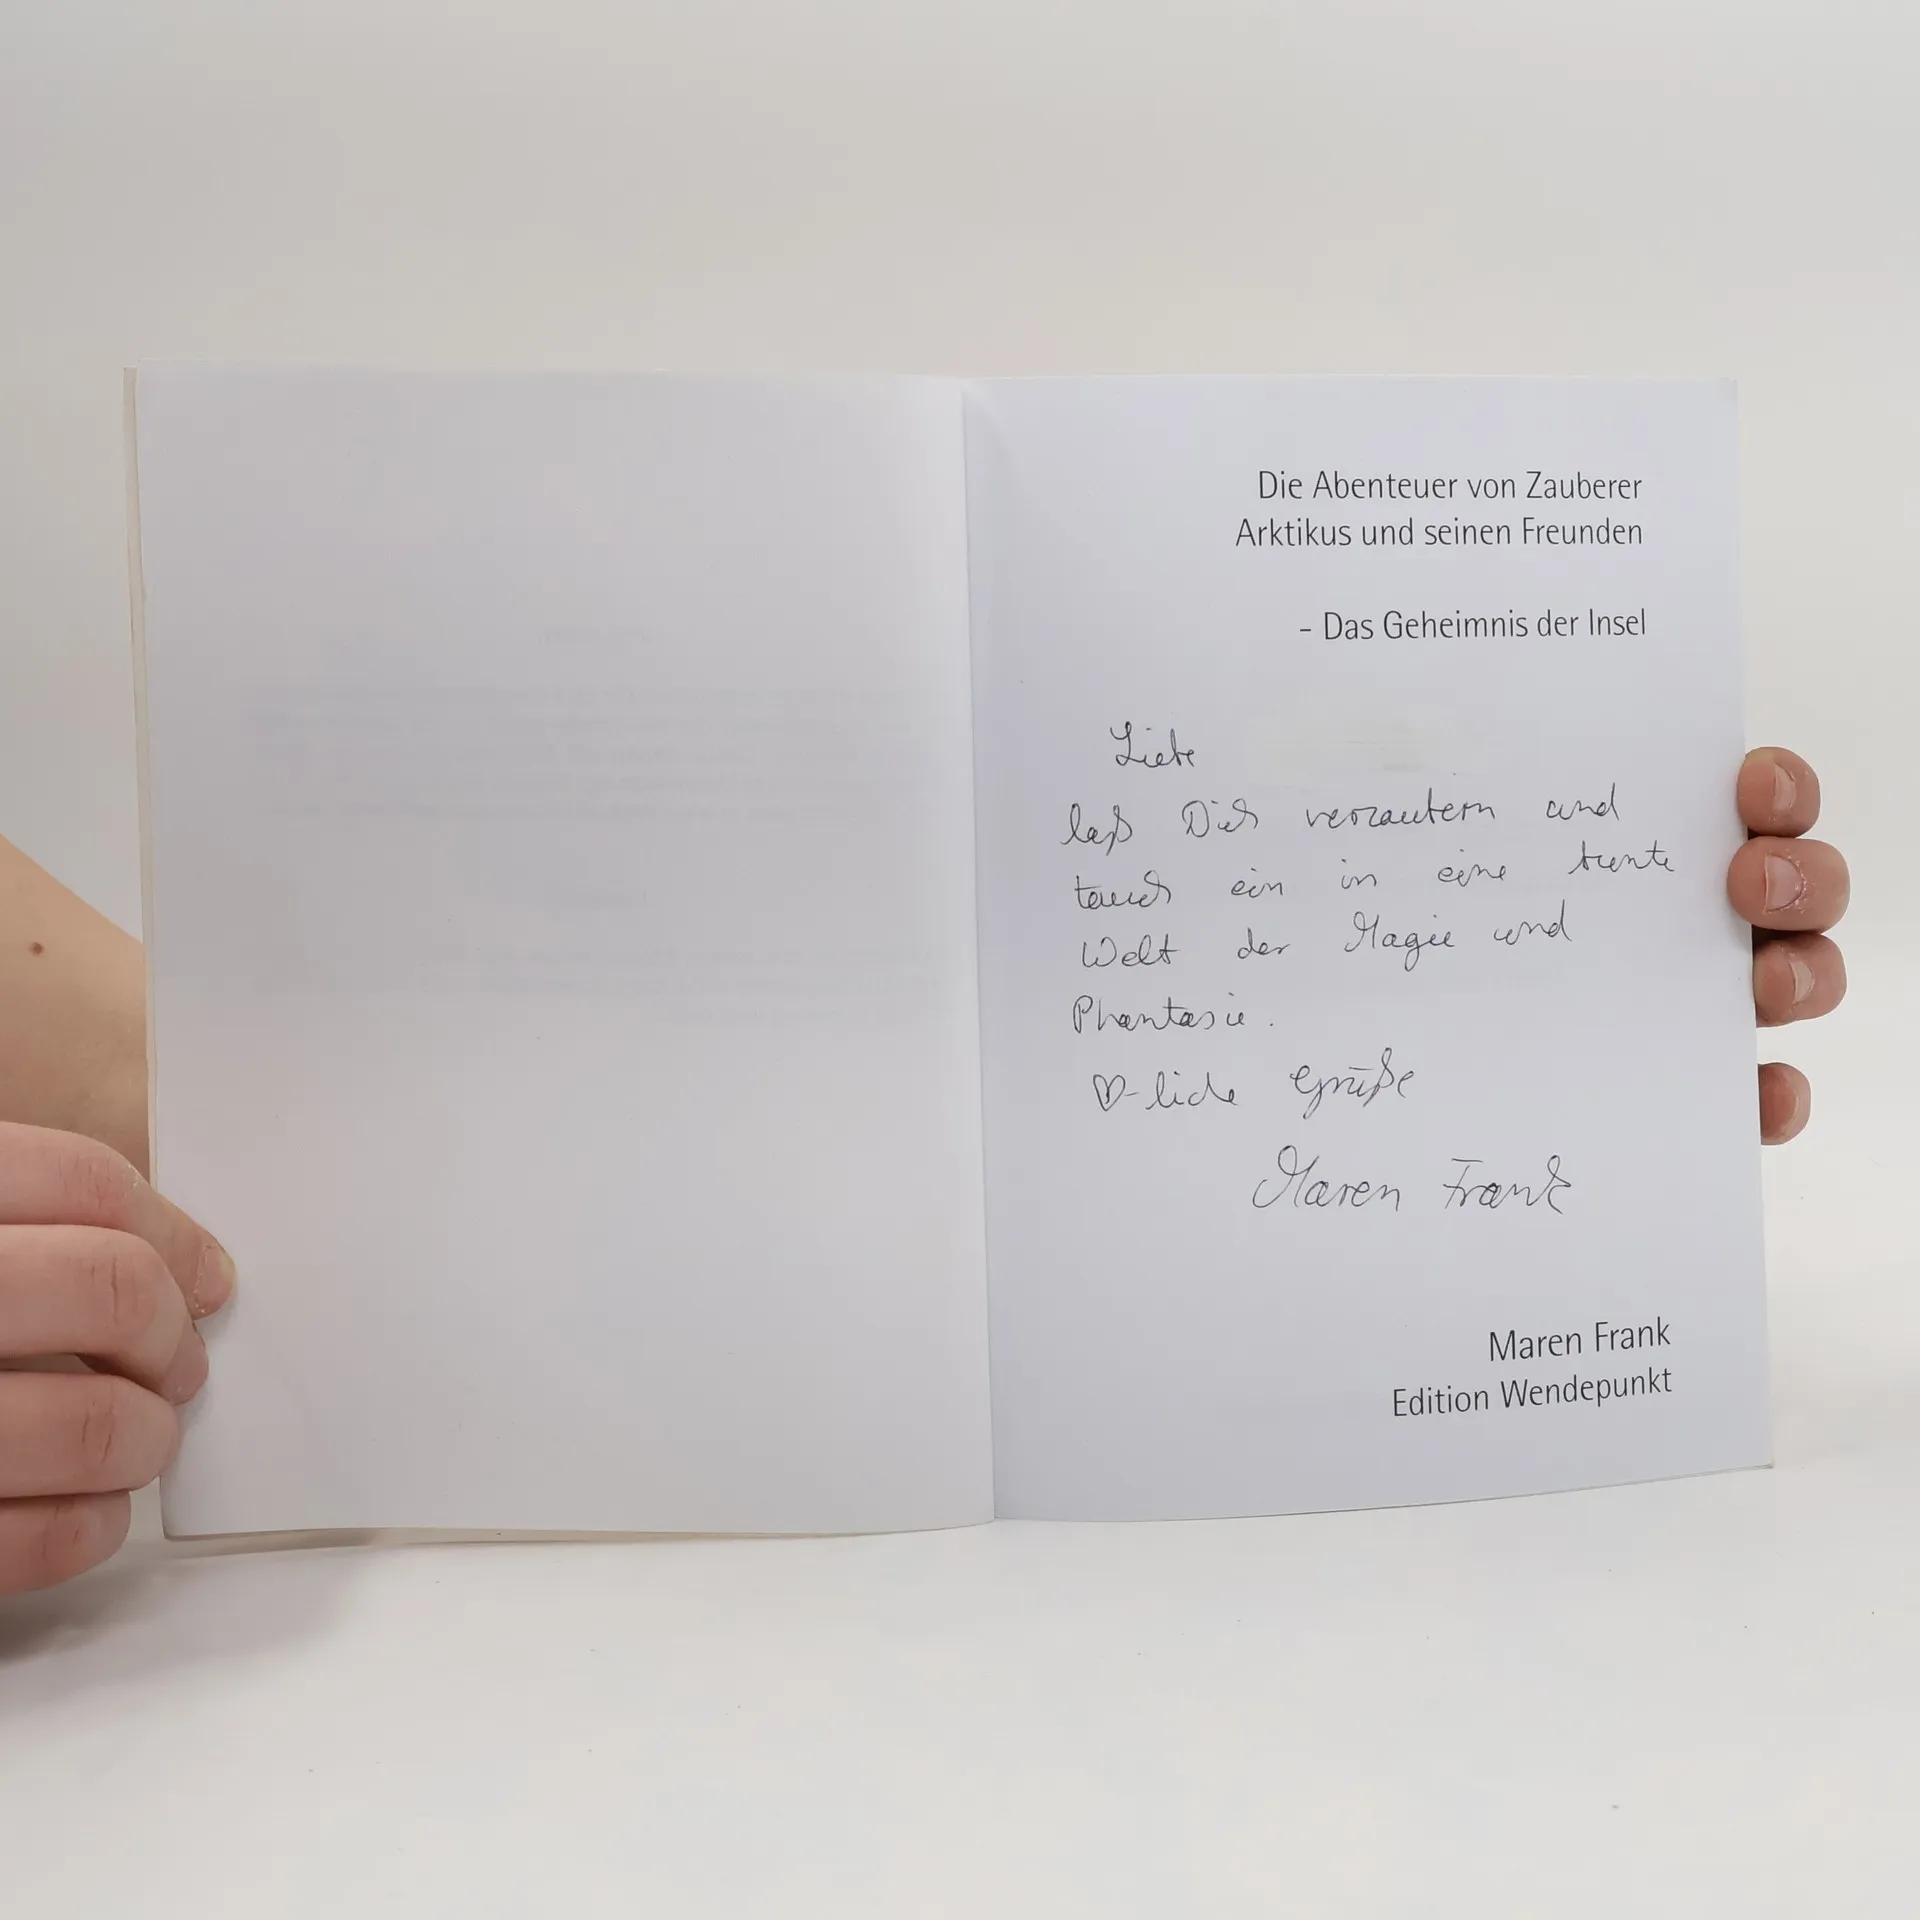 Die Abenteuer von Zauberer
Arktikus und seinen Freunden
- Das Geheimnis der Insel
Liebe
laß Dich verzaubern und
tauch ein in eine bunte
Welt der Magie und
Phantasie.
♡-liche Grüße
Maren Frank
Maren Frank
Edition Wendepunkt